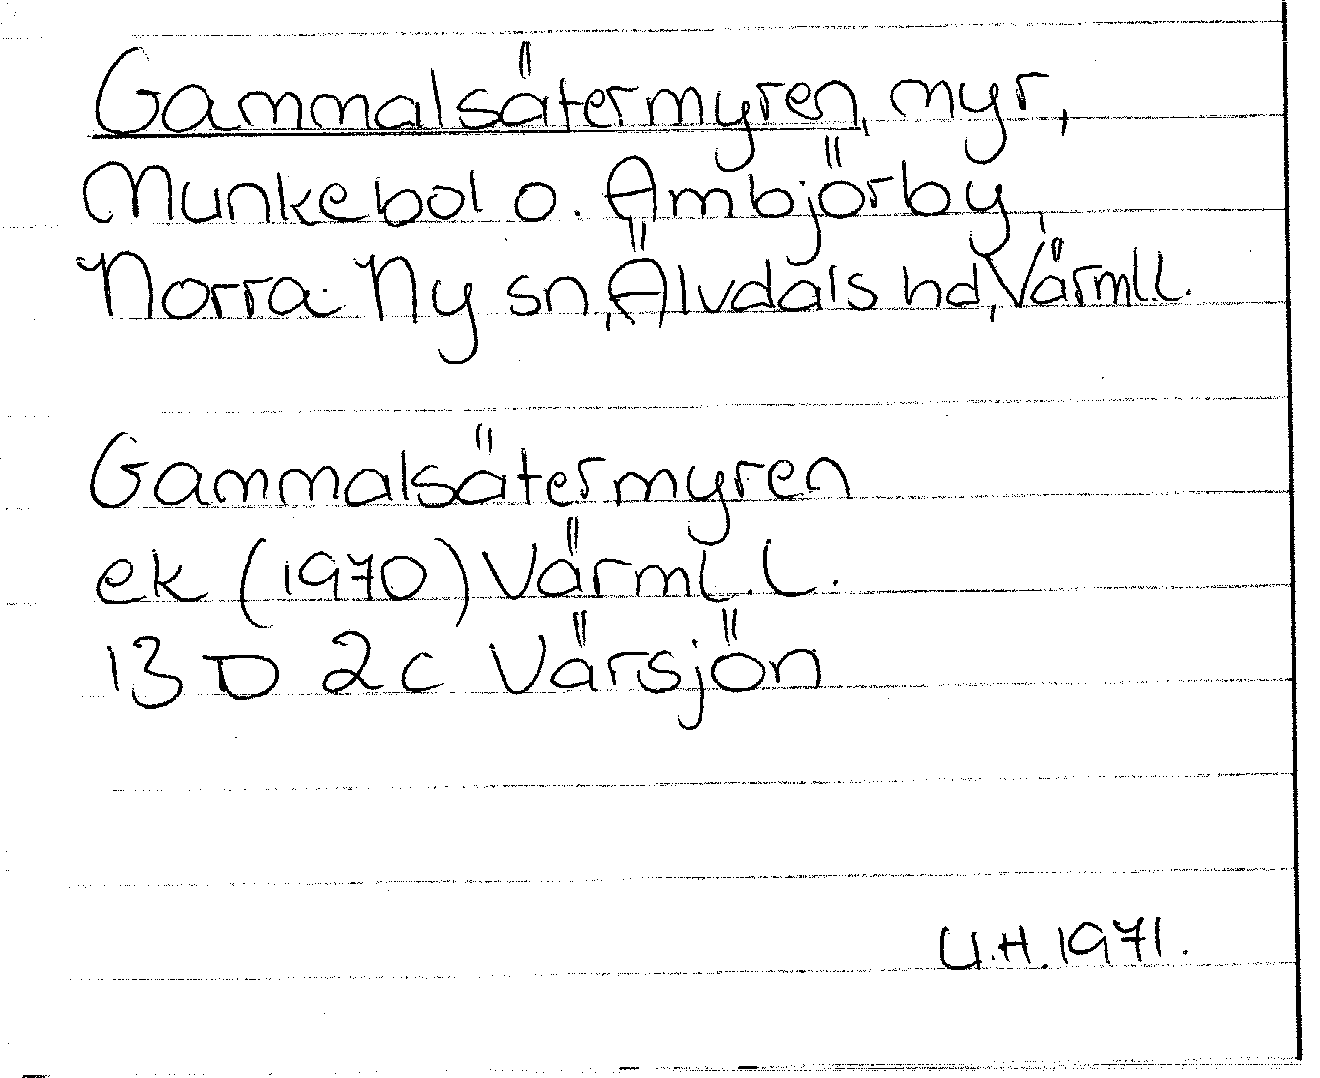 Gammalsätermyren, myr,
Munkebol o. Ambjörby,
Norra Ny sn, Älvdals hd, Värml.l.
Gammalsätermyren
ek (1970) Värml.l.
13 D 2c Värsjön
U.H. 1971.